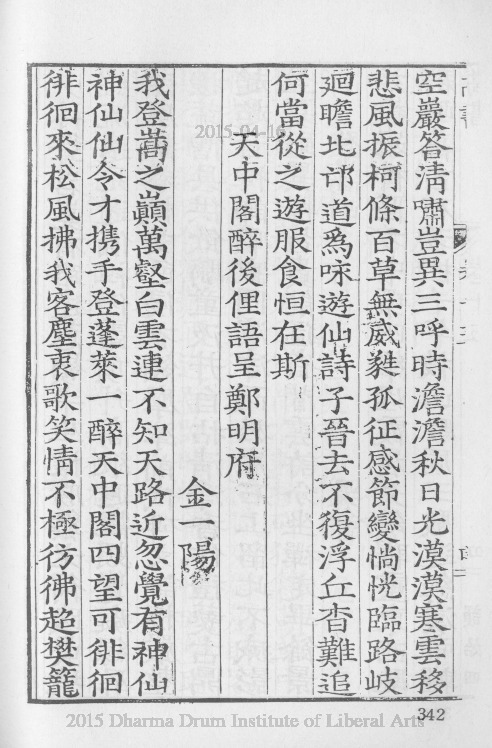 空巖答清嘯豈異三呼時澹澹秋日光漠漠寒雲移
悲風振柯條百草無葳蕤孤征感節變惝恍臨路岐
迴瞻北邙道爲咏遊仙詩子晉去不復浮丘杳難追
何當從之遊服食恒在斯
天中閣醉後俚語呈鄭明府
金一陽
我登嵩之巔萬壑白雲連不知天路近忽覺有神仙
神仙仙令才携手登蓬萊一醉天中閣四望可徘徊
徘徊來松風拂我客塵衷歌笑情不極彷彿超樊籠
2015-04-16
342
2015 Dharma Drum Institute of Liberal Arts